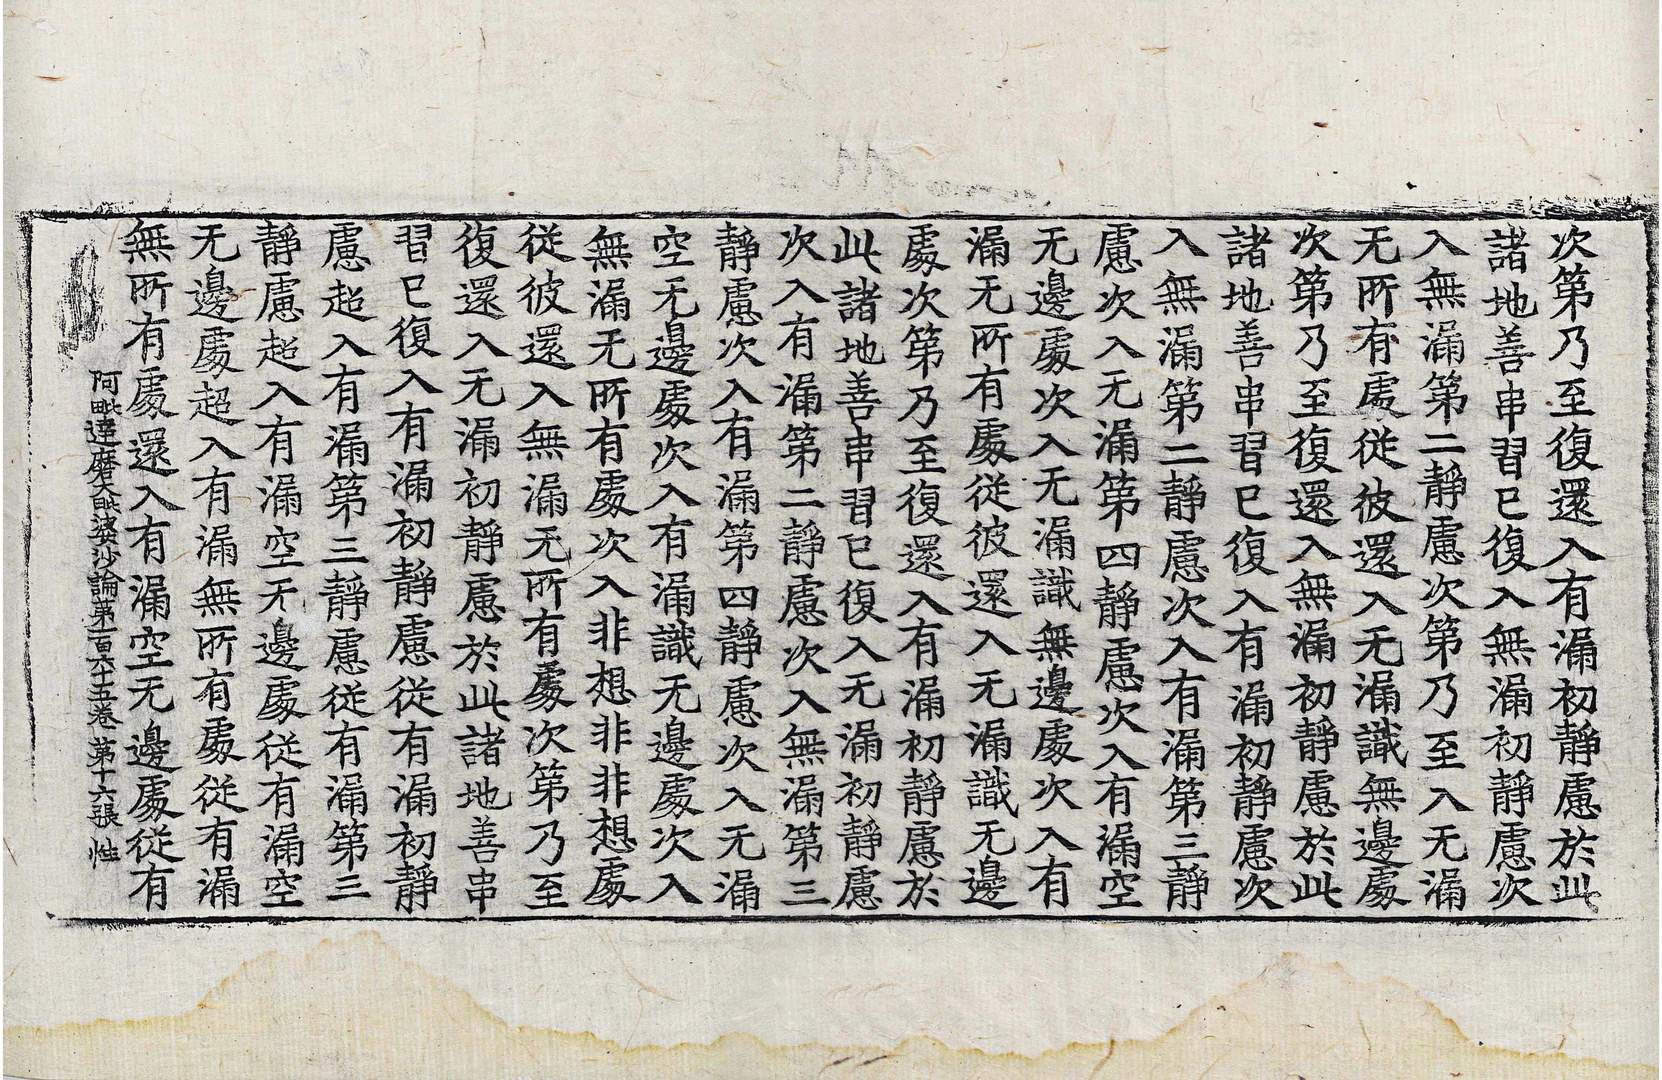 次第乃至復還入有漏初靜慮於此
諸地善串習已復入無漏初靜慮次
入無漏第二靜慮次第乃至入无漏
无所有處従彼還入无漏識無邊處
次第乃至復還入無漏初靜慮於此
諸地善串習已復入有漏初靜慮次
入無漏第二靜慮次入有漏第三靜
慮次入无漏第四靜慮次入有漏空
无邊處次入无漏識無邊處次入有
漏无所有處従彼還入无漏識无邊
處次第乃至復還入有漏初靜慮於
此諸地善串習已復入无漏初靜慮
次入有漏第二靜慮次入無漏第三
靜慮次入有漏第四靜慮次入无漏
空无邊處次入有漏識无邊處次入
無漏无所有處次入非想非非想處
従彼還入無漏无所有處次第乃至
復還入无漏初靜慮於此諸地善串
習已復入有漏初靜慮従有漏初靜
慮超入有漏第三靜慮従有漏第三
靜慮超入有漏空无邊處従有漏空
无邊處超入有漏無所有處従有漏
無所有處還入有漏空无邊處従有
阿毗達磨大毗婆沙論第一百六十五卷 第十六張 性